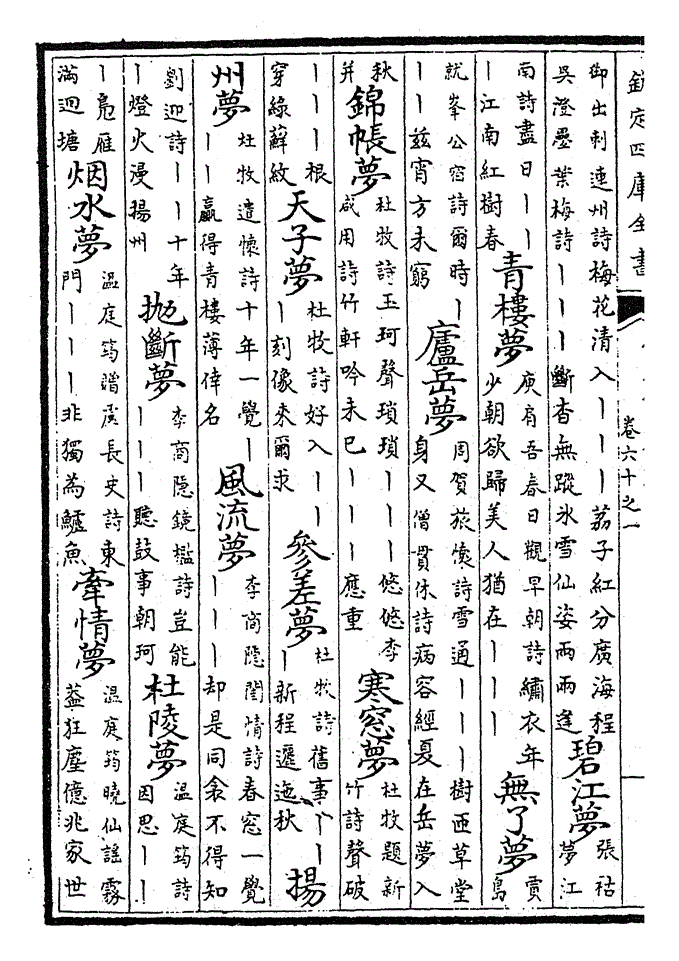 欽定四庫全書
卷六十之一
御出刺連州詩梅花清入丨丨丨荔子紅分廣海程
吳澄墨葉梅詩丨丨丨斷杳無蹤氷雪仙姿兩兩逢
碧江夢
張祜
夢江
南詩盡日丨丨
丨江南紅樹春
青樓夢
庾肩吾春日觀早朝詩繡衣年
少朝欲歸美人猶在丨丨丨
無了夢
賈
島
就峯公宿詩爾時丨
丨丨兹宵方未窮
廬岳夢
周賀旅懷詩雪通丨丨丨樹西草堂
身又僧貫休詩病容經夏在岳夢入
秋
并
錦帳夢
杜牧詩玉珂聲瑣瑣丨丨丨悠悠李
咸用詩竹軒吟未已丨丨丨應重
寒窓夢
杜牧題新
竹詩聲破
丨丨丨根
穿綠蘚紋
天子夢
杜牧詩好入丨丨
丨刻像來爾求
參差夢
杜牧詩舊事丨丨
丨新程邐迤秋
揚
州夢
杜牧遣懷詩十年一覺丨
丨丨贏得青樓薄倖名
風流夢
李商隠閨情詩春窓一覺
丨丨丨却是同衾不得知
劉迎詩丨丨十年
丨燈火漫揚州
抛斷夢
李商隠鏡檻詩豈能
丨丨丨聽鼓事朝珂
杜陵夢
溫庭筠詩
因思丨丨
丨鳬雁
滿迴塘
烟水夢
溫庭筠贈盧長史詩東
門丨丨丨非獨為鱸魚
牽情夢
溫庭筠曉仙謠霧
葢狂塵億兆家世